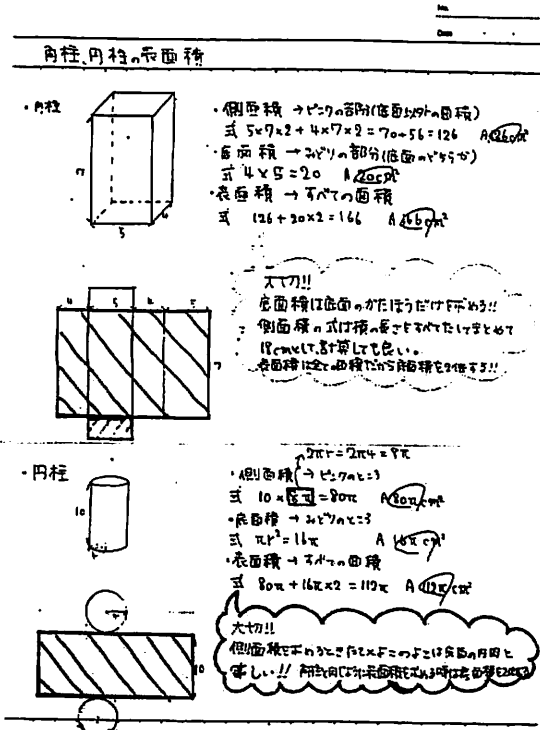 No.
Date
角柱、円柱の表面積
・角柱
7
5
4
・側面積 → ピンクの部分(底面以外の面積)
式 5×7×2 + 4×7×2 = 70+56 = 126 A 126cm²
・底面積 → みどりの部分(底面のどちらか)
式 4×5=20 A 20cm²
・表面積 → すべての面積
式 126+20×2=166 A 166cm²
4 5 4 5
7
大切!!
底面積は底面のかたほうだけ求めろ!!
側面積の式は横の長さをすべてたしてまとめて
18cmとして、計算しても良い。
表面積は全ての面積だから底面積を2倍する!!
・円柱
10
2πr=2π4=8π
・側面積 → ピンクのところ
式 10×8π=80π A 80πcm²
・底面積 → みどりのところ
式 πr²=16π A 16πcm²
・表面積 → すべての面積
式 80π+16π×2=112π A 112πcm²
4
10
大切!!
側面積を求めるときたて×よこのよこは底面の円周と
等しい!!